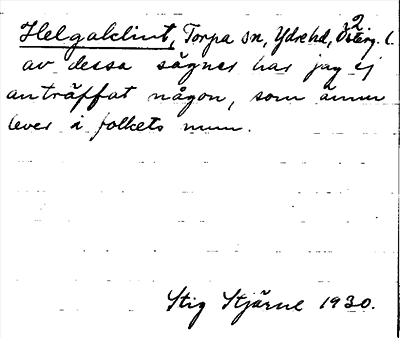 Helgaklint, Torpa sn, Ydre hd, Österg. l.
2
av dessa sägner har jag ej
anträffat någon, som ännu
lever i folkets mun.
Stig Stjärne 1930.